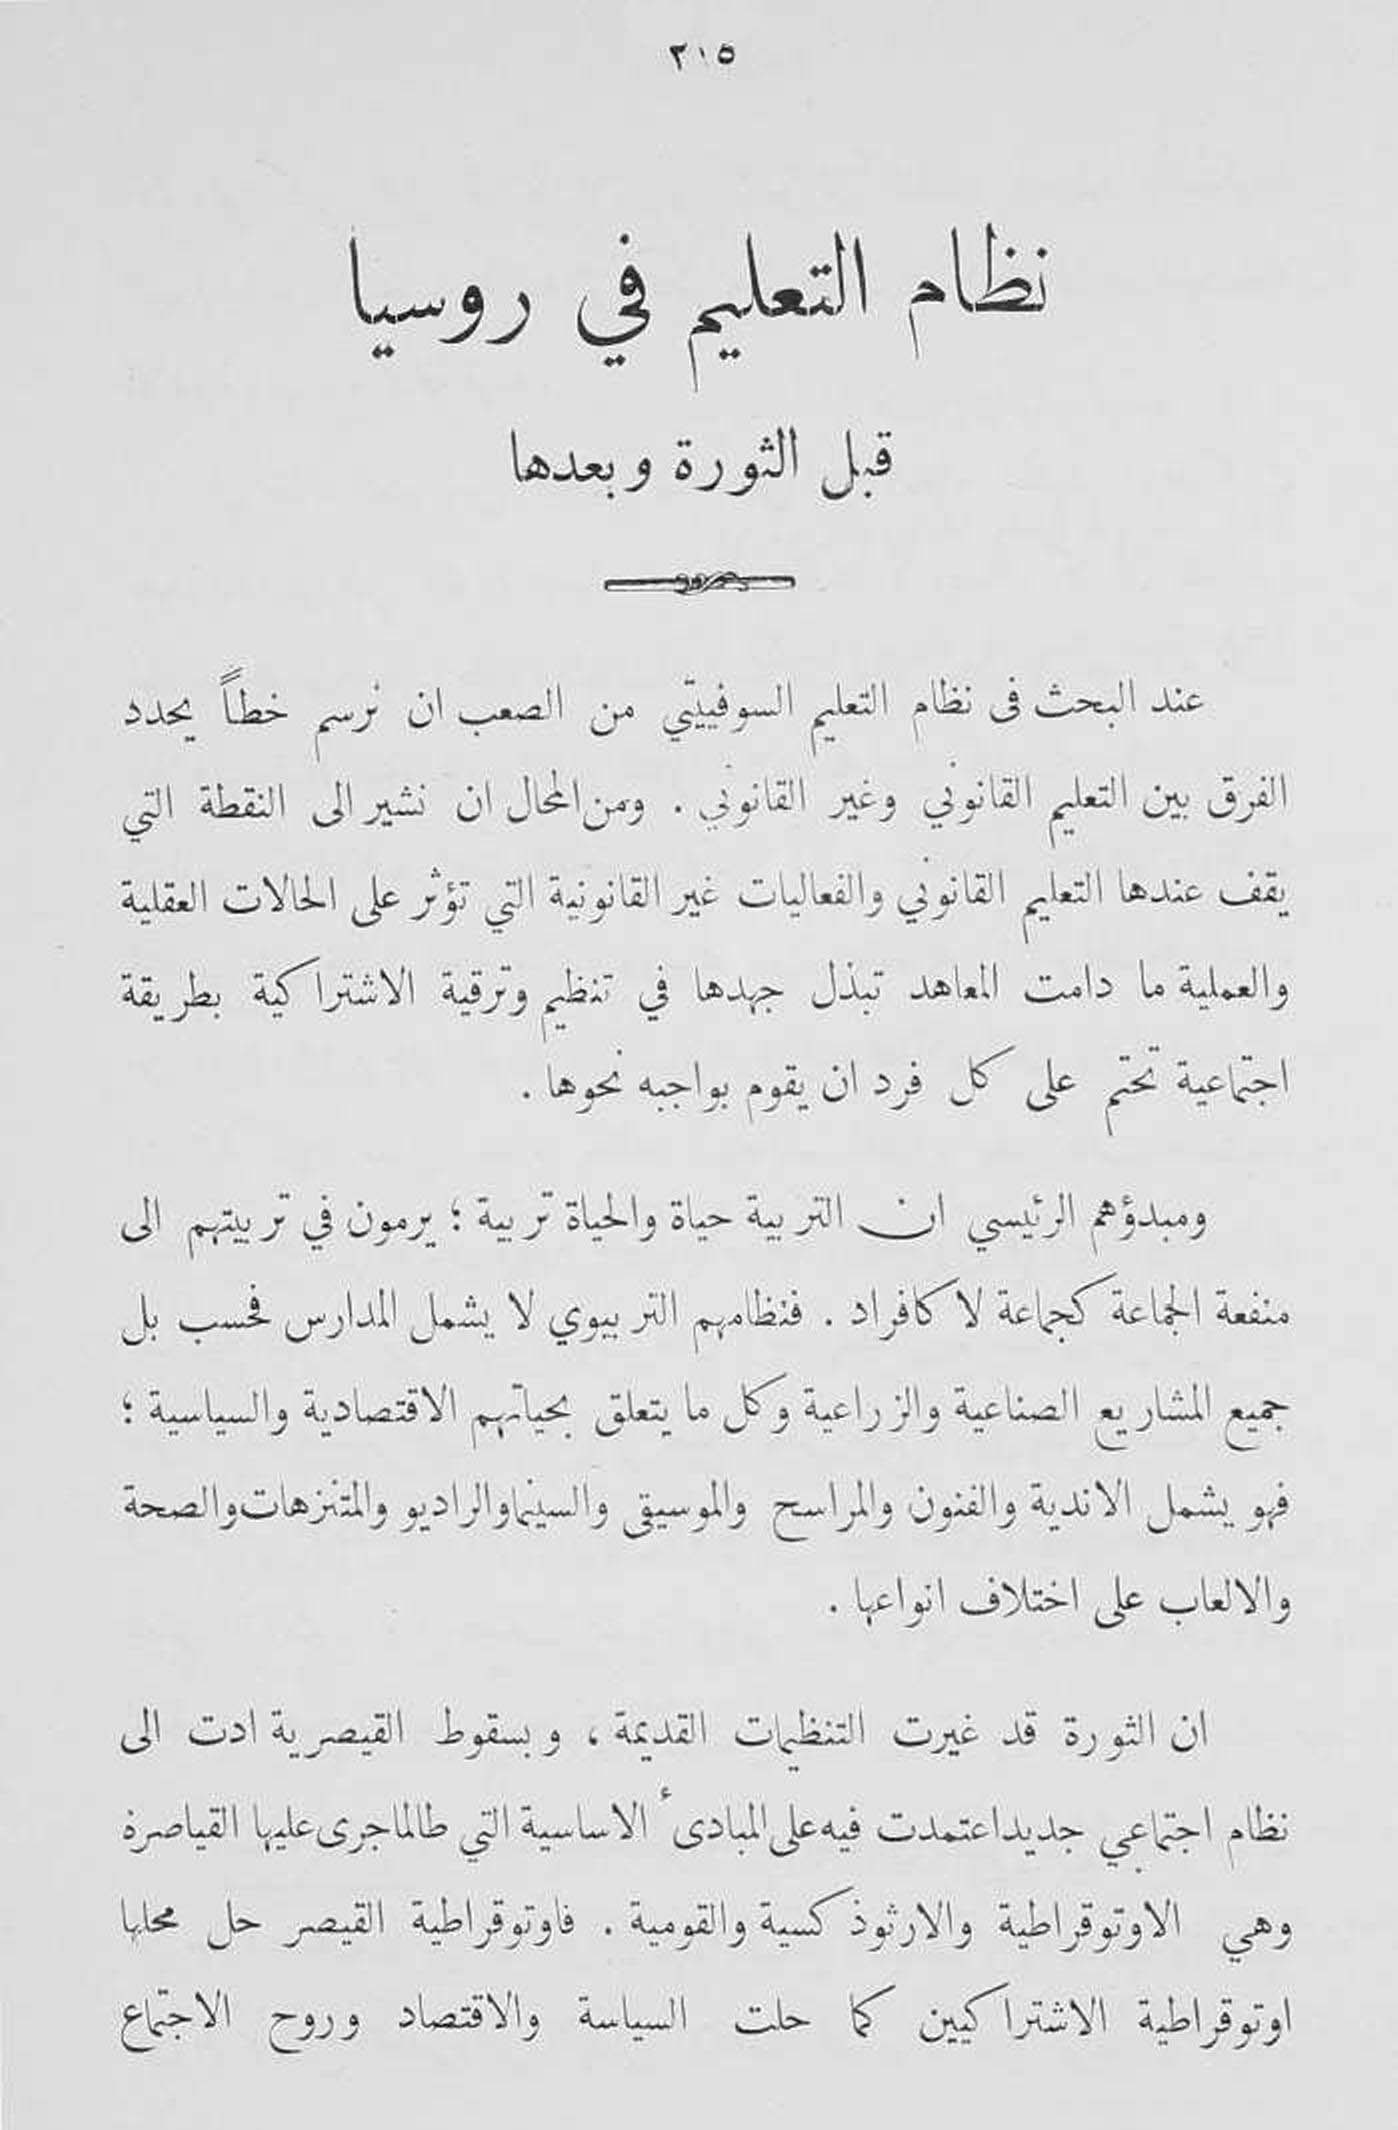 ٣١٥
نظام التعليم في روسيا
قبل الثورة وبعدها
عند البحث فى نظام التعليم السوفييتي من الصعب ان نرسم خطاً يحدد
الفرق بين التعليم القانوني وغير القانوني . ومن المحال ان نشير الى النقطة التي
يقف عندها التعليم القانوني والفعاليات غير القانونية التي تؤثر على الحالات العقلية
والعملية ما دامت المعاهد تبذل جهدها في تنظيم وترقية الاشتراكية بطريقة
اجتماعية تحتم على كل فرد ان يقوم بواجبه نحوها .
ومبدؤهم الرئيسي ان التربية حياة والحياة تربية ؛ يرمون في تربيتهم الى
منفعة الجماعة كجماعة لا كافراد . فنظامهم التربيوي لا يشمل المدارس فحسب بل
جميع المشاريع الصناعية والزراعية وكل ما يتعلق بحياتهم الاقتصادية والسياسية ؛
فهو يشمل الاندية والفنون والمراسح والموسيقى والسينما والراديو والمتنزهات والصحة
والالعاب على اختلاف انواعها .
ان الثورة قد غيرت التنظيمات القديمة ، وبسقوط القيصرية ادت الى
نظام اجتماعي جديد اعتمدت فيه على المبادىء الاساسية التي طالما جرى عليها القياصرة
وهي الاوتوقراطية والارثوذكسية والقومية . فاوتوقراطية القيصر حل محلها
اوتوقراطية الاشتراكيين كما حلت السياسة والاقتصاد وروح الاجتماع